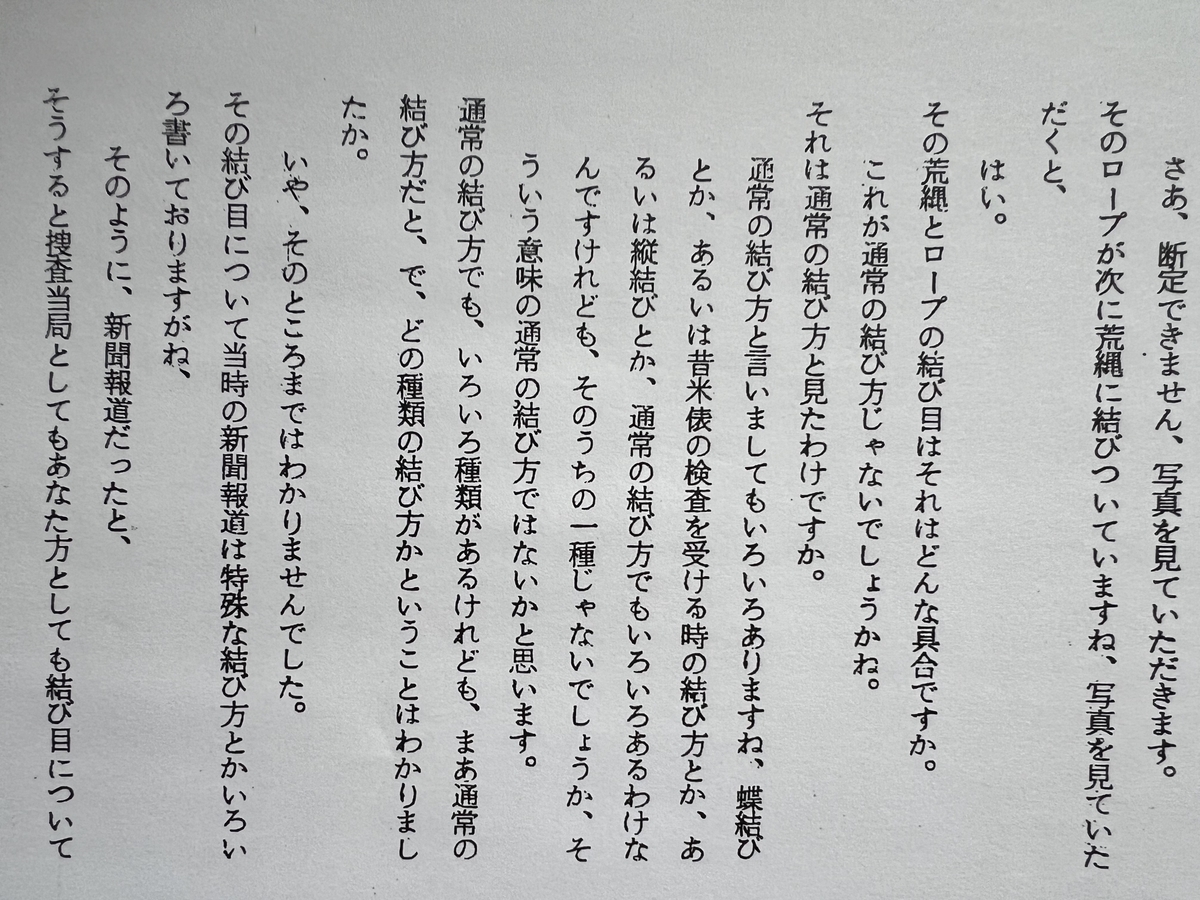 さあ、断定できません、写真を見ていただきます。
そのロープが次に荒縄に結びついていますね、写真を見ていた
だくと、
はい。
その荒縄とロープの結び目はそれはどんな具合ですか。
これが通常の結び方じゃないでしょうかね。
それは通常の結び方と見たわけですか。
通常の結び方と言いましてもいろいろありますね、蝶結び
とか、あるいは昔米俵の検査を受ける時の結び方とか、あ
るいは縦結びとか、通常の結び方でもいろいろあるわけな
んですけれども、そのうちの一種じゃないでしょうか、そ
ういう意味の通常の結び方ではないかと思います。
通常の結び方でも、いろいろ種類があるけれども、まあ通常の
結び方だと、で、どの種類の結び方かということはわかりまし
たか。
いや、そのところまではわかりませんでした。
その結び目について当時の新聞報道は特殊な結び方とかいろい
ろ書いておりますがね、
そのように、新聞報道だったと、
そうすると捜査当局としてもあなた方としても結び目について